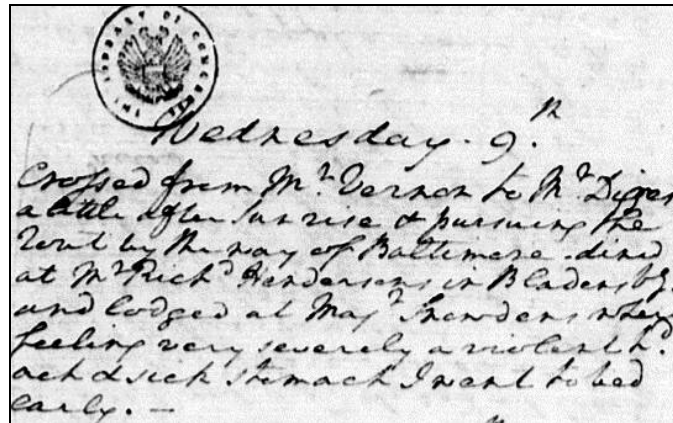 THE LIBRARY OF CONGRESS
Wednesday. 9.th
Crossed from Mt. Vernon to Mr. Diges
a little after Sun rise & pursuing the
rout by the way of Baltimore - dined
at Mr. Richd. Hendersons in Bladensbg.
and lodged at Majr. Snowdens where
feeling very severely a violent hd.
ach & sick stomach I went to bed
early. —